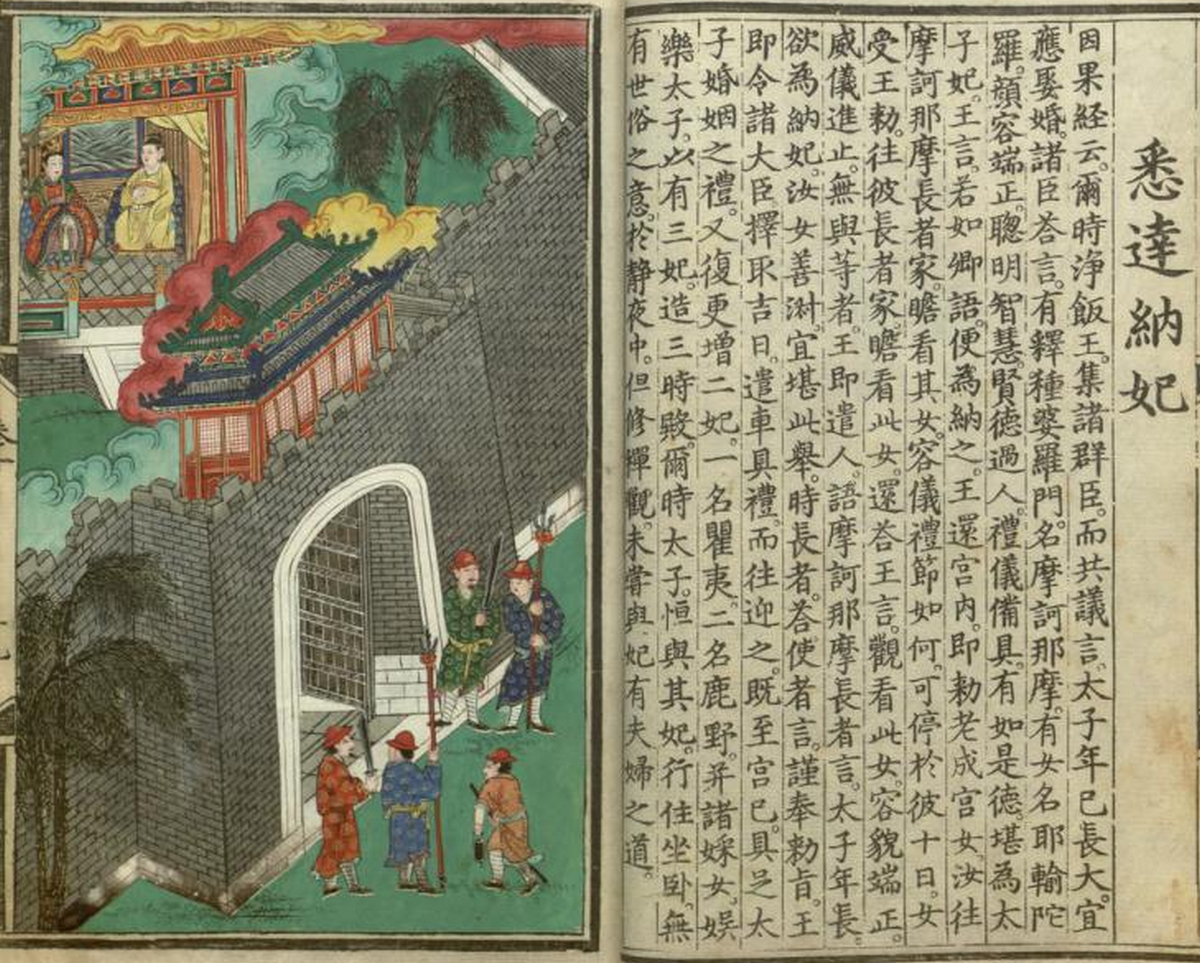 悉達納妃
因果経云。爾時浄飯王。集諸群臣。而共議言。太子年已長大。宜
應娶婚。諸臣荅言。有釋種婆羅門。名摩訶那摩。有女名耶輸陀
羅。顔容端正。聰明智慧。賢徳過人。禮儀備具。有如是徳。堪為太
子妃。王言。若如卿語。便為納之。王還宮内。即勅老成宮女。汝往
摩訶那摩長者家。瞻看其女。容儀禮節如何。可停於彼十日。女
受王勅。往彼長者家。瞻看此女。還荅王言。觀看此女。容貌端正。
威儀進止。無與等者。王即遣人。語摩訶那摩長者言。太子年長
欲為納妃。汝女善淑。宜堪此舉。時長者。荅使者言。謹奉勅旨。王
即令諸大臣。擇取吉日。遣車具禮。而往迎之。既至宮已。具足太
子婚姻之禮。又復更增二妃。一名瞿夷。二名鹿野。并諸婇女。娯
樂太子。以有三妃。造三時殿。爾時太子。恒與其妃。行住坐卧。無
有世俗之意。於靜夜中。但修禪觀。未嘗與妃有夫婦之道。